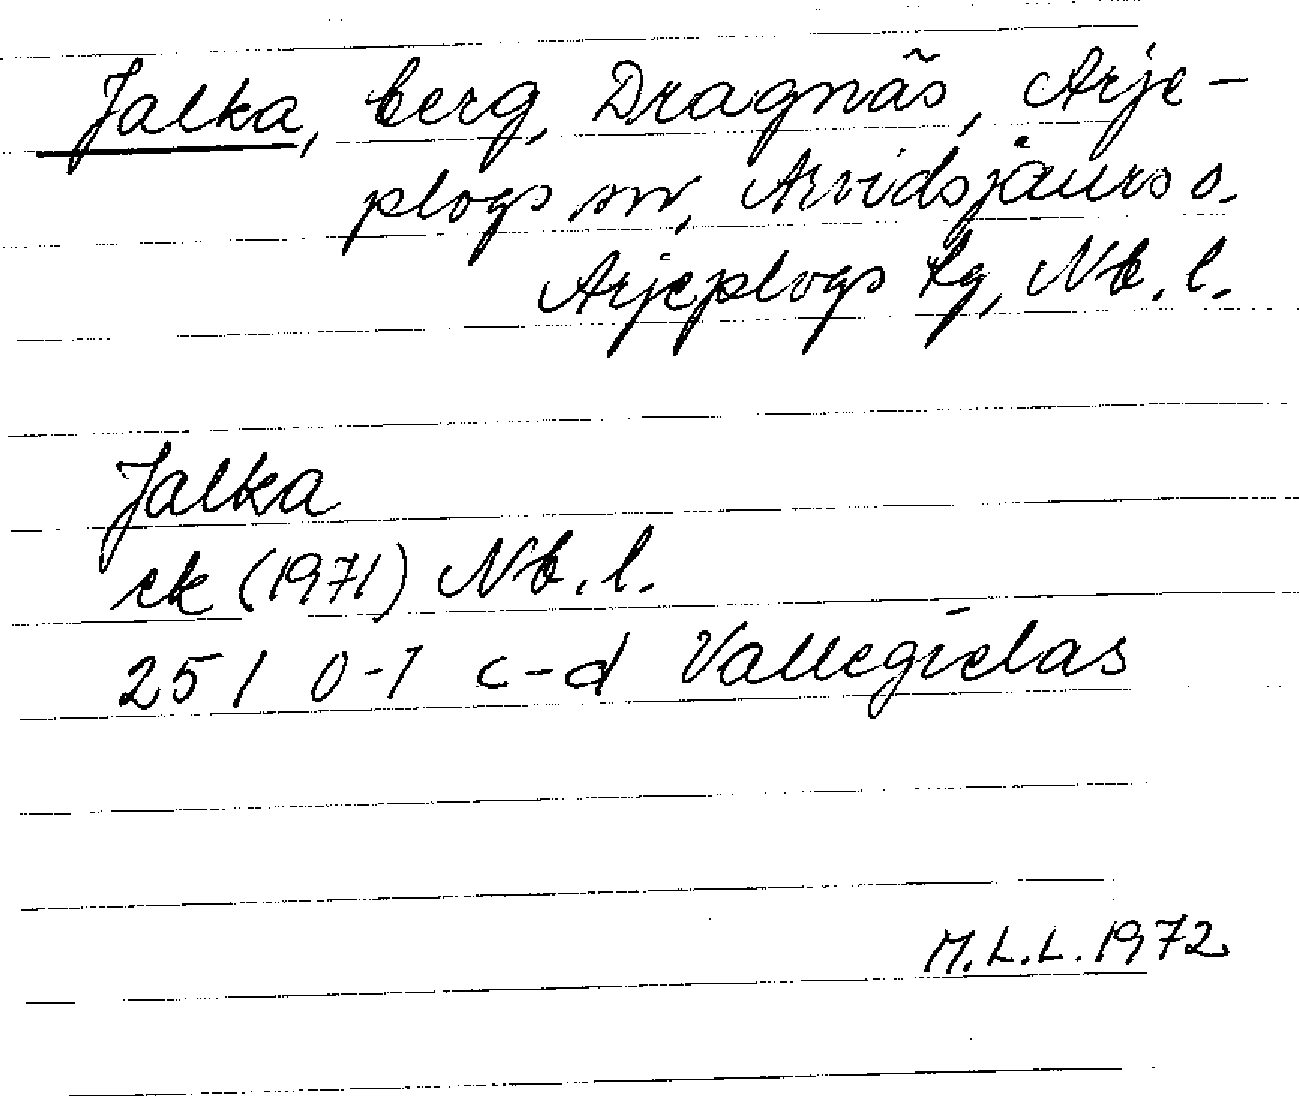 Jalka, berg, Dragnäs, Arje-
plogs sn, Arvidsjaurs o.
Arjeplogs tg, Nb. l.
Jalka
ek (1971) Nb. l.
25 I 0-1 c-d Vallegielas
M.L.L. 1972